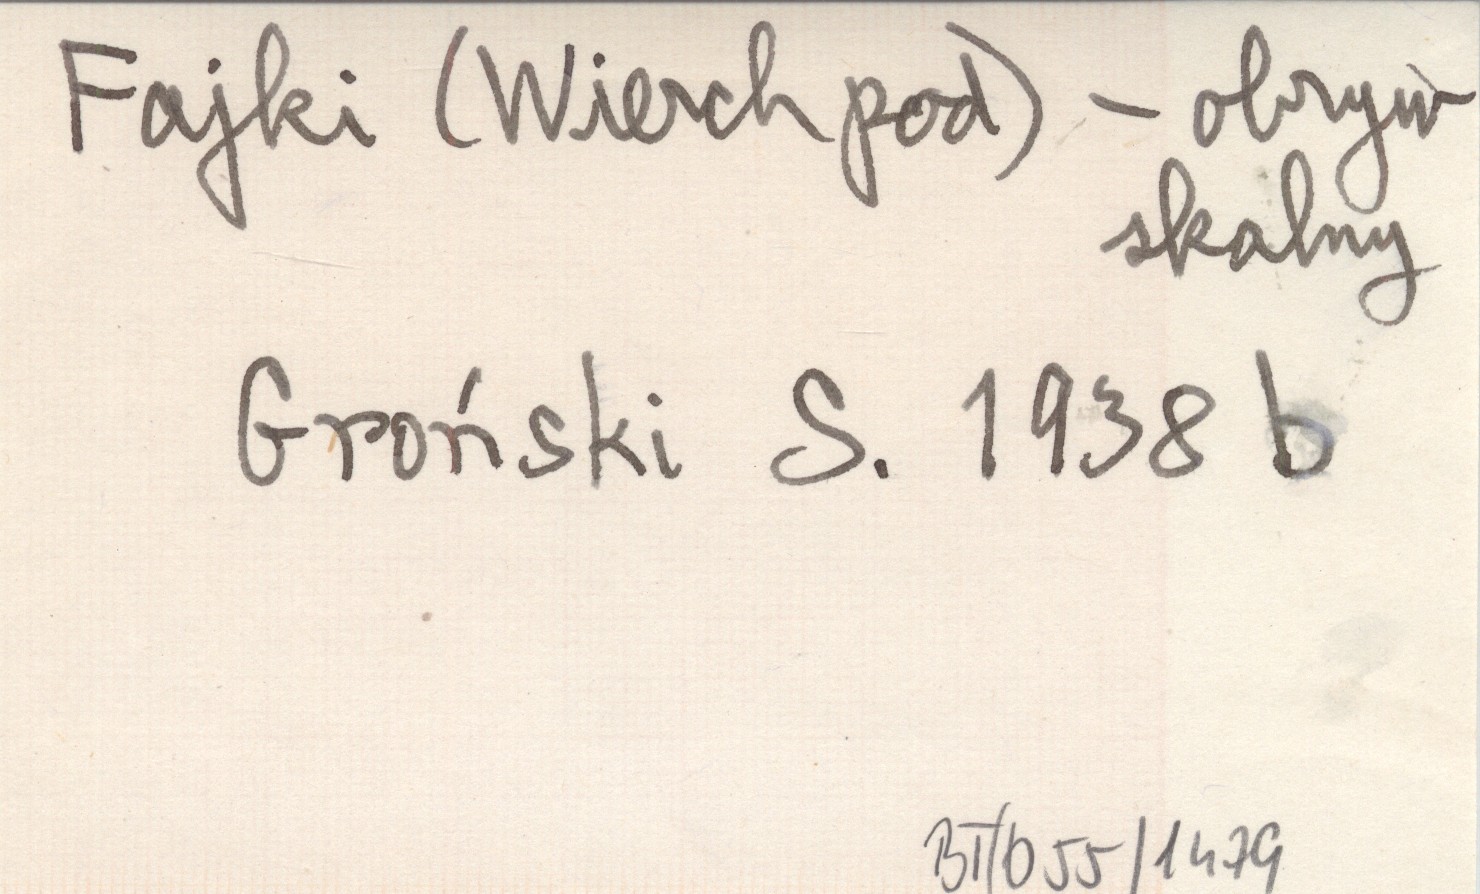 Fajki (Wierch pod) – obryw
skalny
Groński S. 1938 b
BT/055/1479